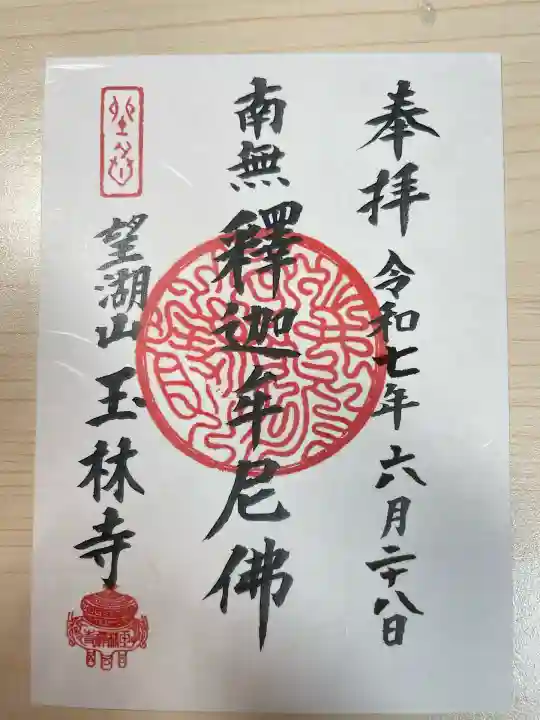 奉拝 令和七年 六月二十八日
南無 釋迦牟尼佛
望湖山 玉林寺